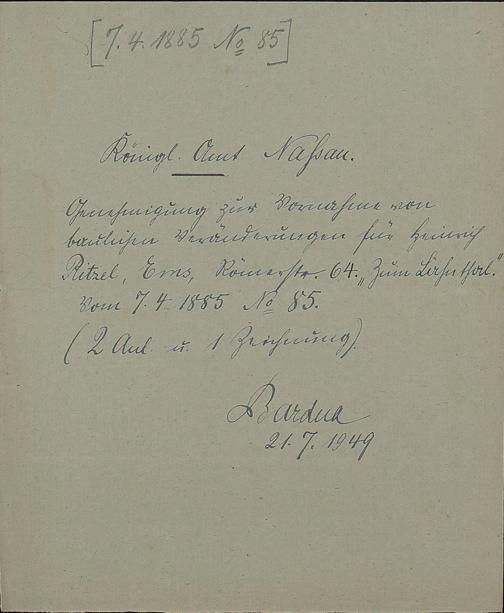 [7.4.1885 No 85]
Königl. Amt Nassau.
Genehmigung zur Vornahme von
baulichen Veränderungen für Heinrich
Ritzel, Ems, Römerstr. 64. „Zum Lahnthal."
vom 7.4.1885 No 85.
(2 Anl. u. 1 Zeichnung)
Bardua
21.7.1949